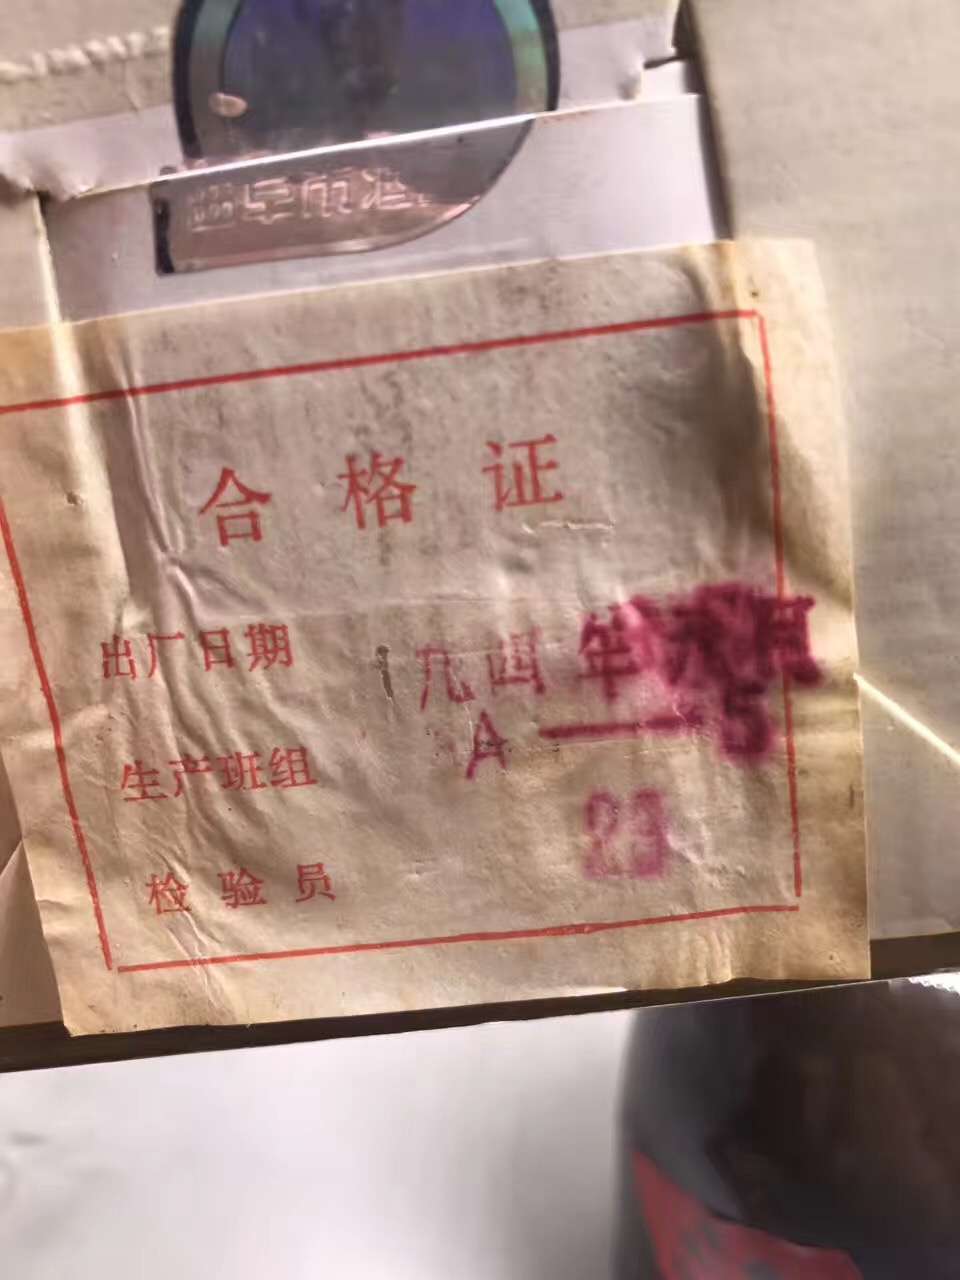 合格证
出厂日期 九四年 月
生产班组 A—5
检验员 23